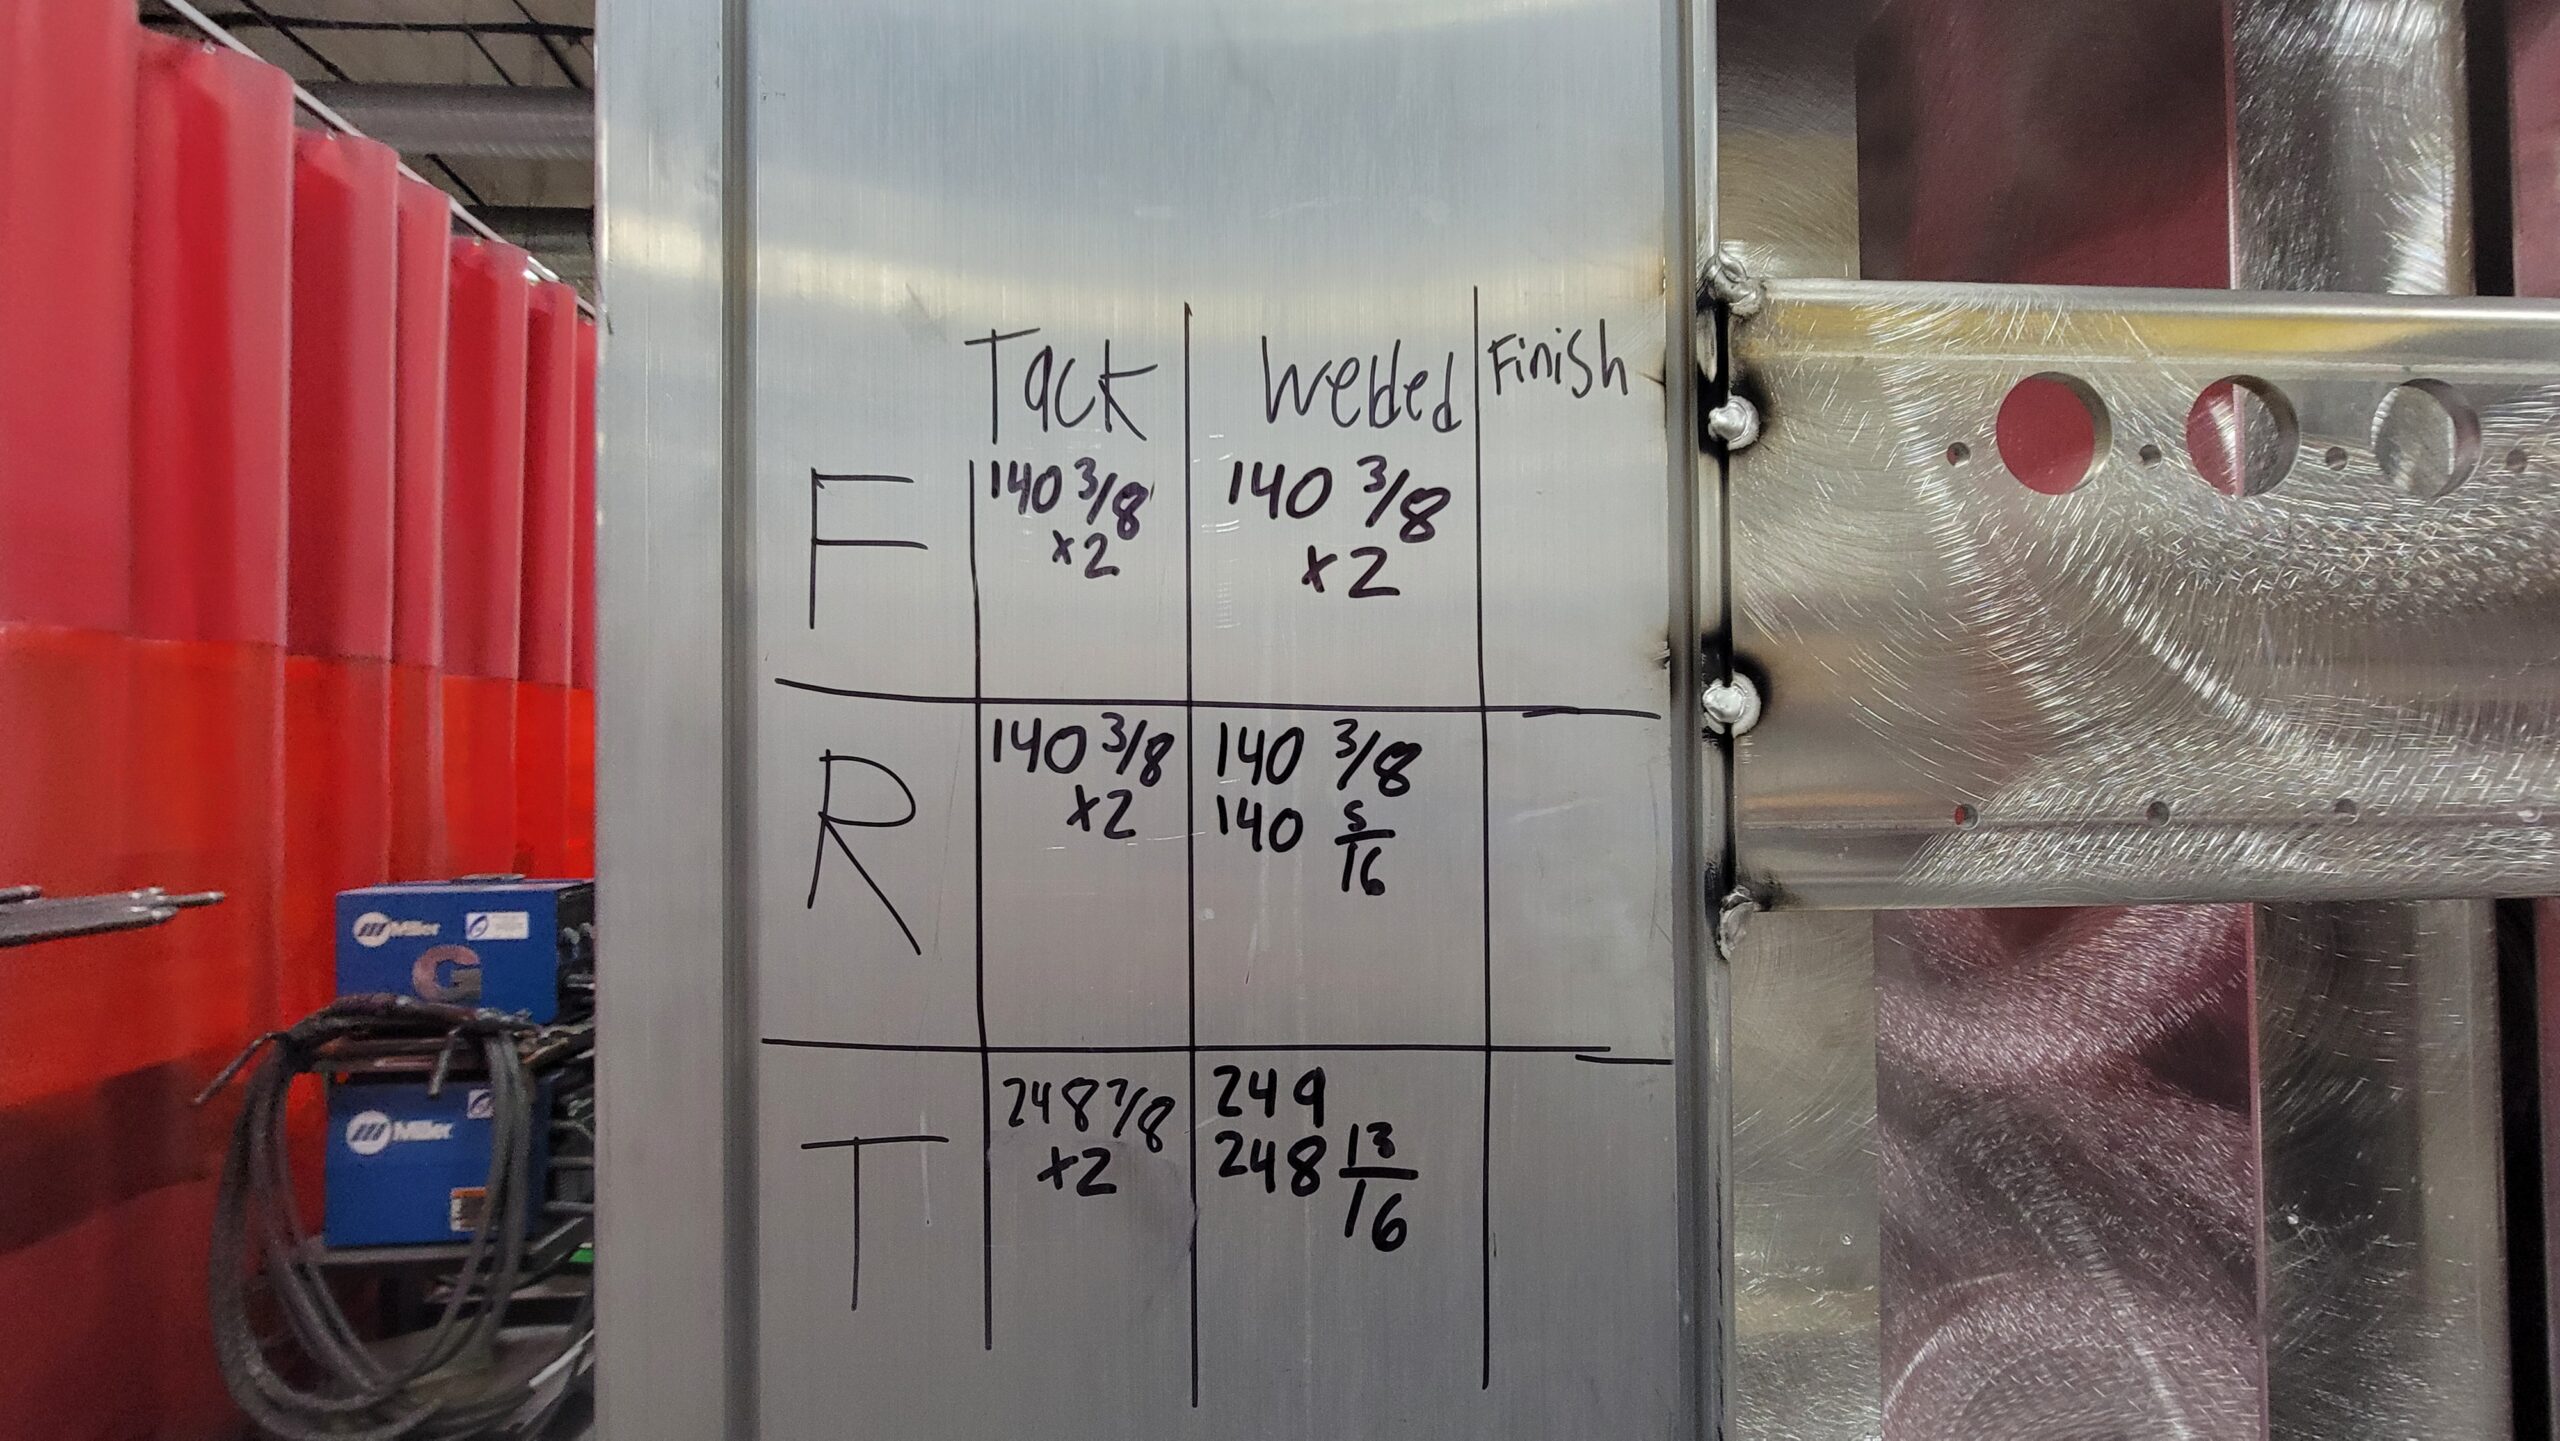 Tack Welded Finish
F 140 3/8 140 3/8
x2 x2
R 140 3/8 140 3/8
x2 140 5/16
T 248 7/8 249
x2 248 13/16
Miller
G
Miller